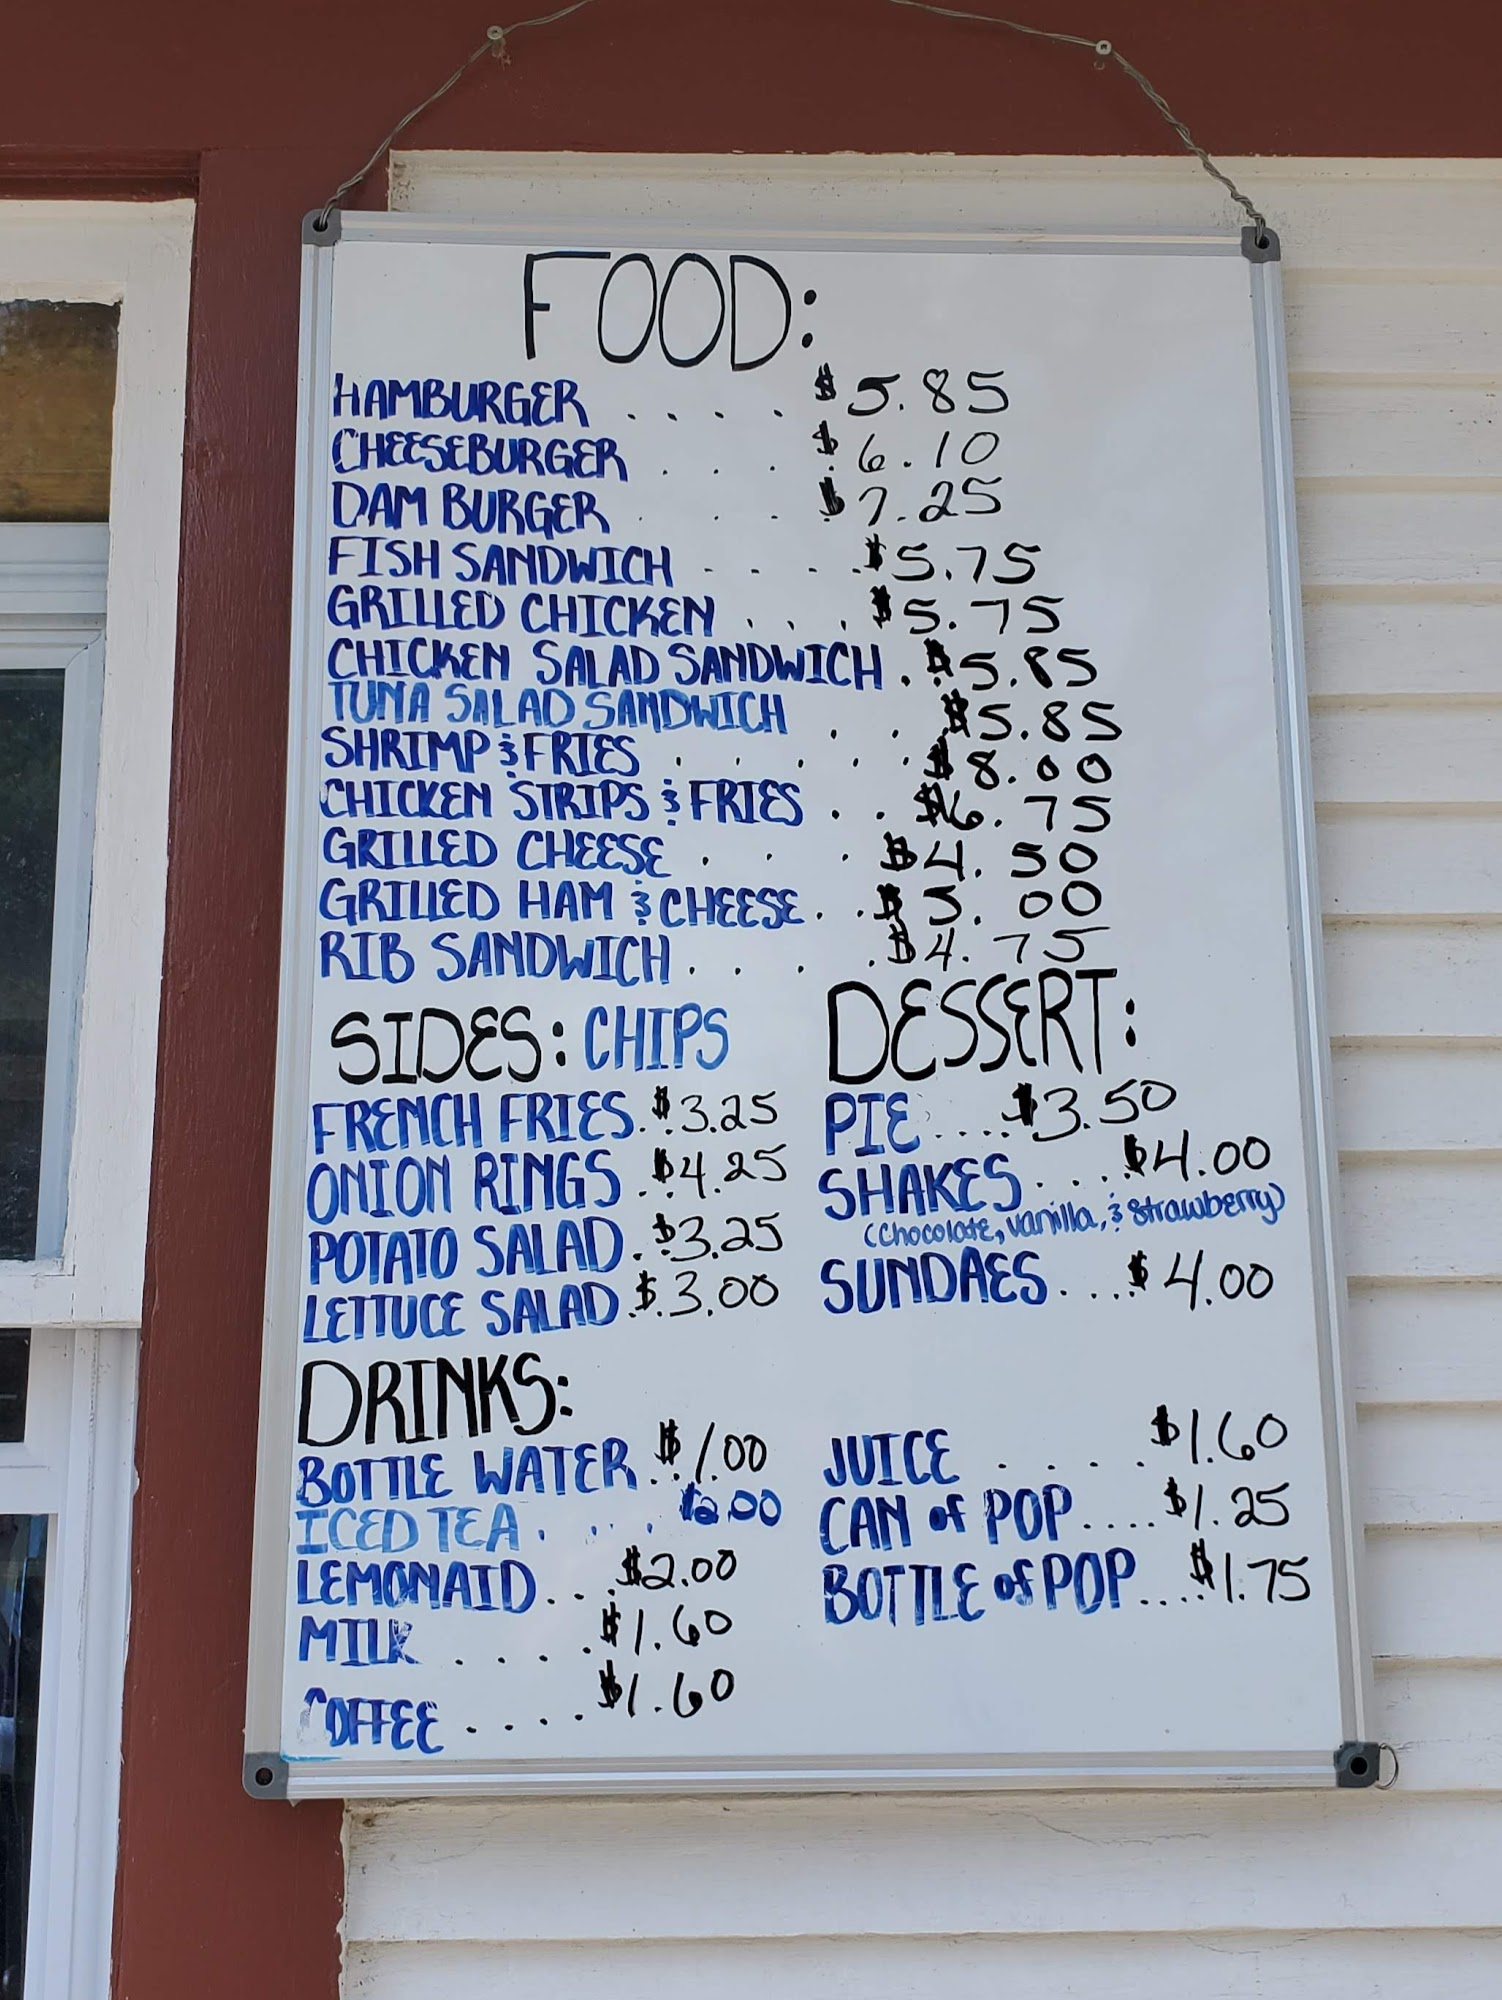 FOOD:
HAMBURGER .... $5.85
CHEESEBURGER .... $6.10
DAM BURGER .... $7.25
FISH SANDWICH .... $5.75
GRILLED CHICKEN ... $5.75
CHICKEN SALAD SANDWICH . $5.85
TUNA SALAD SANDWICH ... $5.85
SHRIMP & FRIES ..... $8.00
CHICKEN STRIPS & FRIES .. $6.75
GRILLED CHEESE ... $4.50
GRILLED HAM & CHEESE .. $5.00
RIB SANDWICH .... $4.75
SIDES: CHIPS
FRENCH FRIES .. $3.25
ONION RINGS .. $4.25
POTATO SALAD . $3.25
LETTUCE SALAD .. $3.00
DESSERT:
PIE .... $3.50
SHAKES .... $4.00
(chocolate, vanilla, & strawberry)
SUNDAES ... $4.00
DRINKS:
BOTTLE WATER .. $1.00
ICED TEA .... $2.00
LEMONAID ... $2.00
MILK .... $1.60
COFFEE .... $1.60
JUICE .... $1.60
CAN of POP .... $1.25
BOTTLE of POP .... $1.75